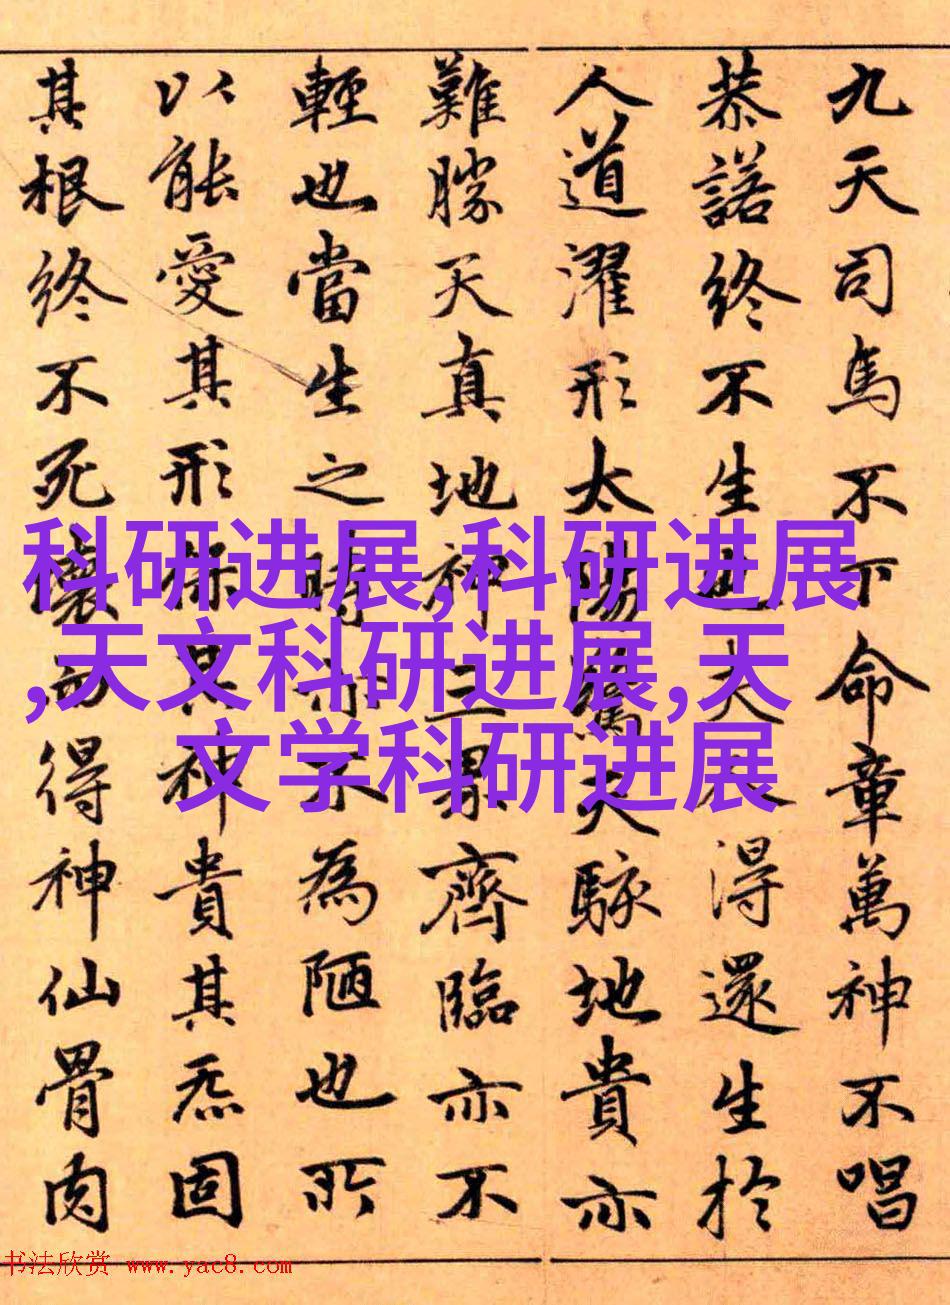 九天司馬不下命章萬神不唱
恭諾終不生也夫人得還生於
人道濯形太陽驚天駭地貴亦
難勝天真地神三界齊臨亦不
輕也當生之時亦不為陋也所
以能愛其形保其神貴其炁固
其根終不死壞而得神仙骨肉
科研进展,科研进展
,天文科研进展,天
文学科研进展
书法欣赏 www.yac8.com